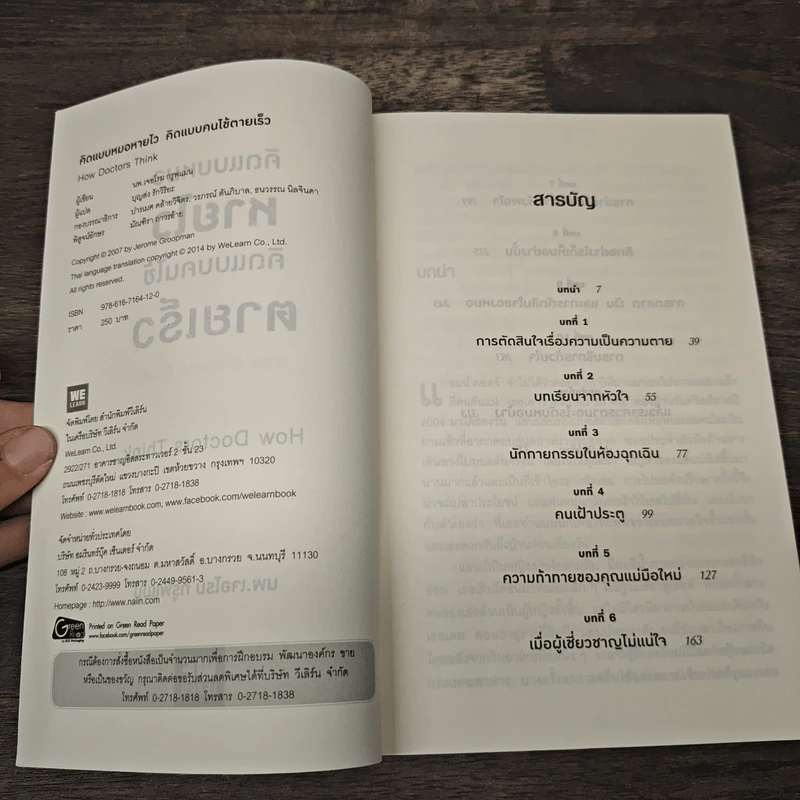 คิดแบบหมอหายไว คิดแบบคนไข้ตายเร็ว
How Doctors Think
ผู้เขียน นพ.เจอโรม กรูพแมน
ผู้แปล บุญส่ง รักวิริยะ
กองบรรณาธิการ ปารเมศ คล้ายวิจิตร, วรภรณ์ ตันภิบาล, ธนวรรณ นิลจินดา
พิสูจน์อักษร มัณฑิรา ถาวรฮ้าย
Copyright © 2007 by Jerome Groopman
Thai language translation copyright © 2014 by WeLearn Co., Ltd.
All rights reserved.
ISBN 978-616-7164-12-0
ราคา 250 บาท
WE LEARN
จัดพิมพ์โดย สำนักพิมพ์วีเลิร์น
ในเครือบริษัท วีเลิร์น จำกัด
WeLearn Co., Ltd.
2922/271 อาคารชาญอิสสระทาวเวอร์ 2 ชั้น 23
ถนนเพชรบุรีตัดใหม่ แขวงบางกะปิ เขตห้วยขวาง กรุงเทพฯ 10320
โทรศัพท์ 0-2718-1818 โทรสาร 0-2718-1838
Website : www.welearnbook.com, www.facebook.com/welearnbook
จัดจำหน่ายทั่วประเทศโดย
บริษัท อมรินทร์บุ๊ค เซ็นเตอร์ จำกัด
108 หมู่ 2 ถ.บางกรวย-จงถนอม ต.มหาสวัสดิ์ อ.บางกรวย จ.นนทบุรี 11130
โทรศัพท์ 0-2423-9999 โทรสาร 0-2449-9561-3
Homepage : http://www.naiin.com
Green Read Printed on Green Read Paper
www.facebook.com/greenreadpaper
กรณีต้องการสั่งซื้อหนังสือเป็นจำนวนมากเพื่อการฝึกอบรม พัฒนาองค์กร ขาย
หรือเป็นของขวัญ กรุณาติดต่อขอรับส่วนลดพิเศษได้ที่บริษัท วีเลิร์น จำกัด
โทรศัพท์ 0-2718-1818 โทรสาร 0-2718-1838
สารบัญ
บทนำ 7
บทที่ 1
การตัดสินใจเรื่องความเป็นความตาย 39
บทที่ 2
บทเรียนจากหัวใจ 55
บทที่ 3
นักกายกรรมในห้องฉุกเฉิน 77
บทที่ 4
คนเฝ้าประตู 99
บทที่ 5
ความท้าทายของคุณแม่มือใหม่ 127
บทที่ 6
เมื่อผู้เชี่ยวชาญไม่แน่ใจ 163